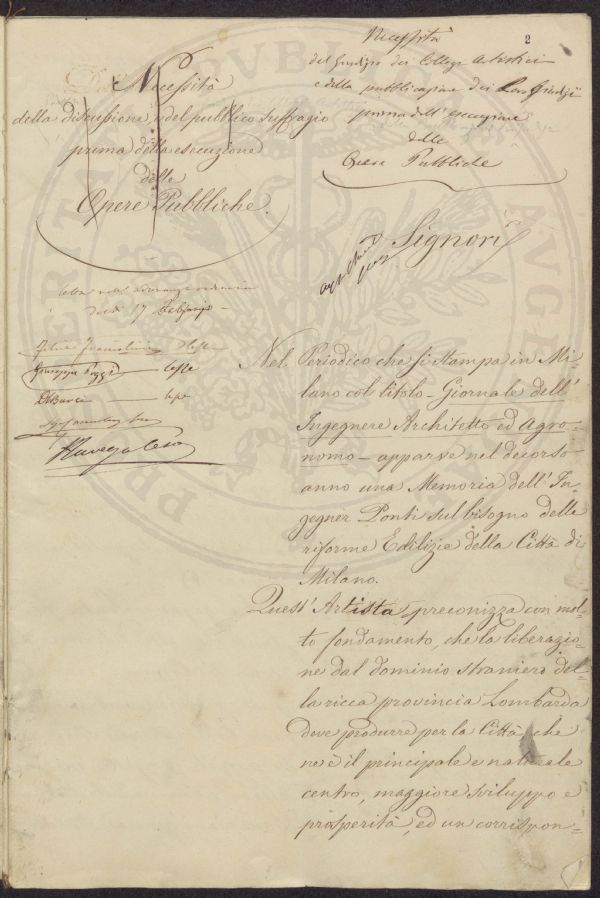 2
Necessità
della discussione, e del pubblico suffragio
prima della esecuzione
delle
Opere Pubbliche.
Necessità
del Giudizio dei Collegi Artistici
e della pubblicazione dei Loro Giudizii
prima dell' esecuzione
delle
Opere Pubbliche
Signori
17 Febbrajo
Giuseppe Pozzi
Nel Periodico che si stampa in Mi=
lano col titolo - Giornale dell'
Ingegnere Architetto ed Agro=
nomo - apparve nel decorso
anno una Memoria dell' In=
gegner Ponti sul bisogno delle
riforme Edilizie della Città di
Milano.
Quest' Artista, preconizza con mol=
to fondamento, che la liberazio=
ne dal dominio straniero del=
la ricca provincia Lombarda
deve produrre per la Città, che
ne è il principale e naturale
centro, maggiore sviluppo e
prosperità, ed un corrispon=